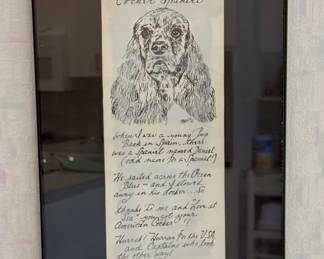 Cocker Spaniel
When I was a young Pup
Back in Spain, there
was a Spaniel named Daniel
(odd name for a Spaniel!)
He sailed across the Ocean
Blue - and I stowed
away in his locker... so
thanks to me and "Love at
Sea" you got your
American Cocker!!
Hurrah! Hurrah for the USA
and Captains who look
the other way!